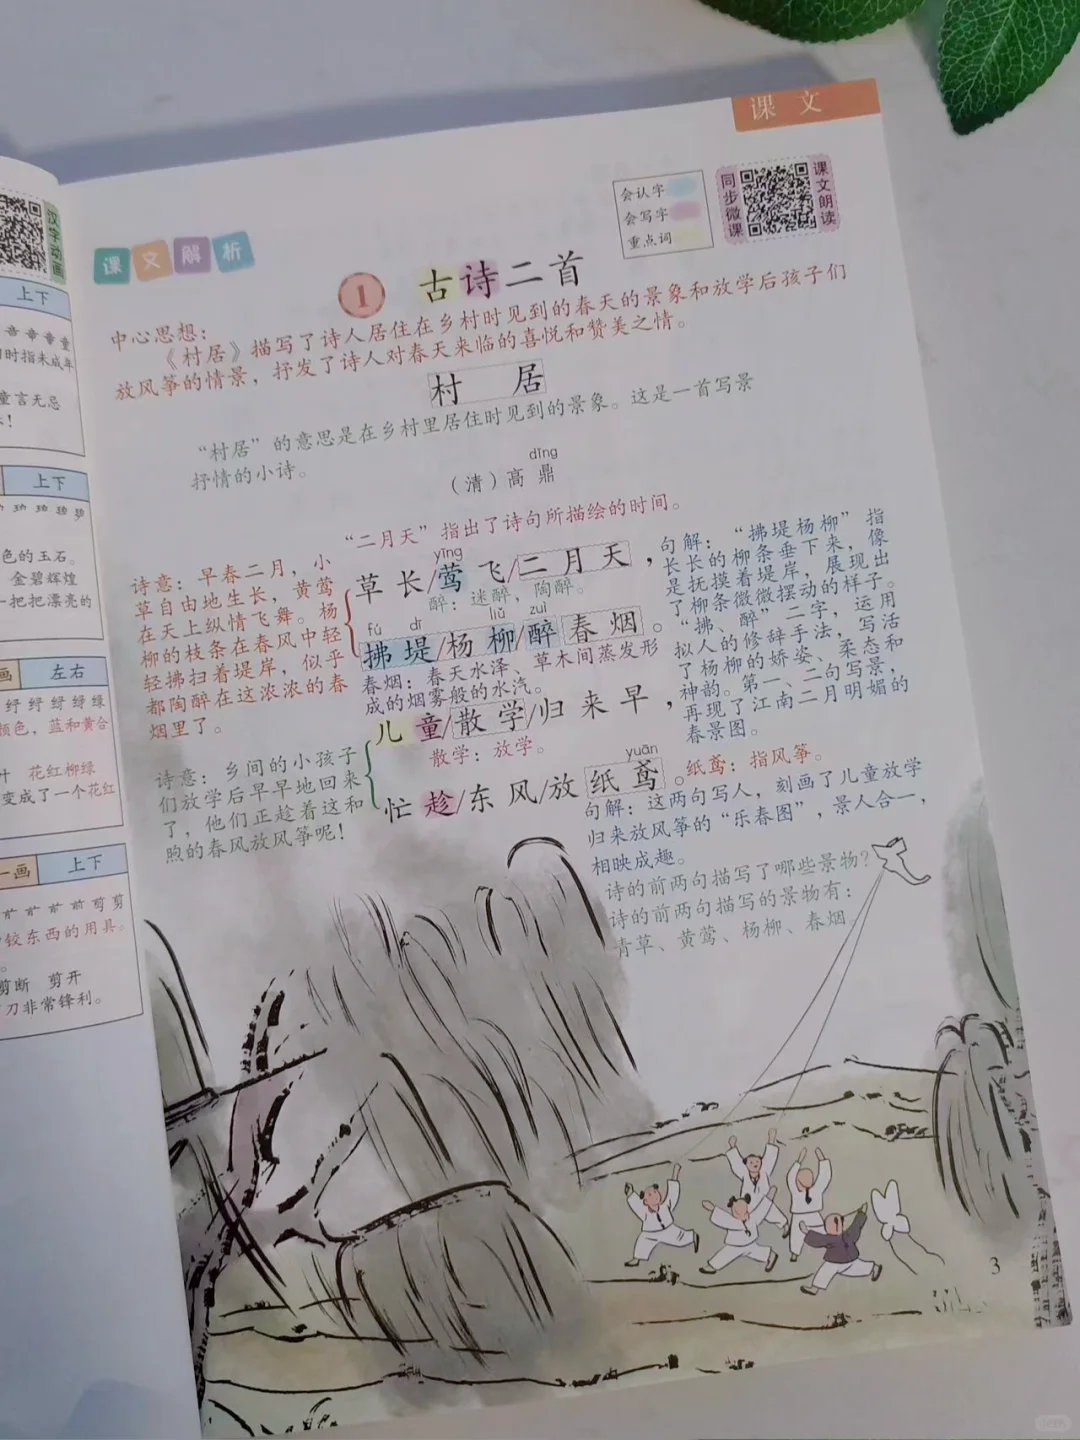 课文
会认字
会写字
重点词
同步微课
课文朗读
课文解析
1 古诗二首
中心思想：
《村居》描写了诗人居住在乡村时见到的春天的景象和放学后孩子们
放风筝的情景，抒发了诗人对春天来临的喜悦和赞美之情。
村居
“村居”的意思是在乡村里居住时见到的景象。这是一首写景
抒情的小诗。
dǐng
（清）高鼎
“二月天”指出了诗句所描绘的时间。
诗意：早春二月，小
草自由地生长，黄莺
在天上纵情飞舞。杨
柳的枝条在春风中轻
轻拂扫着堤岸，似乎
都陶醉在这浓浓的春
烟里了。
yīng
草长/莺飞/二月天，
醉：迷醉，陶醉。
fú dī liǔ zuì
拂堤/杨柳/醉春烟。
春烟：春天水泽、草木间蒸发形
成的烟雾般的水汽。
句解：“拂堤杨柳”指
长长的柳条垂下来，像
是抚摸着堤岸，展现出
了柳条微微摆动的样子。
“拂、醉”二字，运用
拟人的修辞手法，写活
了杨柳的娇姿、柔态和
神韵。第一、二句写景，
再现了江南二月明媚的
春景图。
诗意：乡间的小孩子
们放学后早早地回来
了，他们正趁着这和
煦的春风放风筝呢！
儿童/散学/归来早，
散学：放学。
yuān
忙趁/东风/放纸鸢。
纸鸢：指风筝。
句解：这两句写人，刻画了儿童放学
归来放风筝的“乐春图”，景人合一，
相映成趣。
诗的前两句描写了哪些景物？
诗的前两句描写的景物有：
青草、黄莺、杨柳、春烟
3
汉字动画
上下
时指未成年
童言无忌
上下
色的玉石。
金碧辉煌
一把把漂亮的
画 左右
颜色，蓝和黄合
花红柳绿
变成了一个花红
一画 上下
铰东西的用具。
剪断 剪开
刀非常锋利。